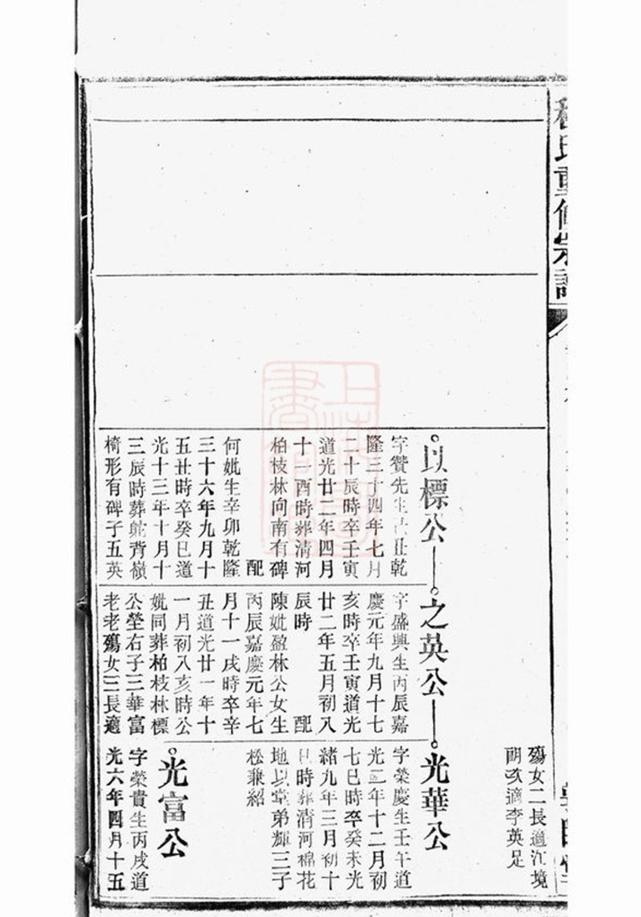 殤女二長適江境
適李英足
以標公
字贊先生
隆三十四年七月
二十辰時卒壬寅
道光廿二年四月
十一酉時葬清河
柏枝林向南有碑
配
何妣生辛卯乾隆
三十六年九月十
五丑時卒癸巳道
光十三年十月十
三辰時葬鴕背嶺
椅形有碑子五英
之英公
字盛興生丙辰嘉
慶元年九月十七
亥時卒壬寅道光
廿二年五月初八
辰時配
陳妣盈林公女生
丙辰嘉慶元年七
月十一戌時卒辛
丑道光廿一年十
一月初八亥時公
妣同葬柏枝林標
公塋右子三華富
老老殤女三長適
光華公
字榮慶生壬午道
光二年十二月初
七巳時卒癸未光
緒九年三月初十
巳時葬清河棉花
地以堂弟輝三子
松兼紹
光富公
字榮貴生丙戌道
光六年四月十五